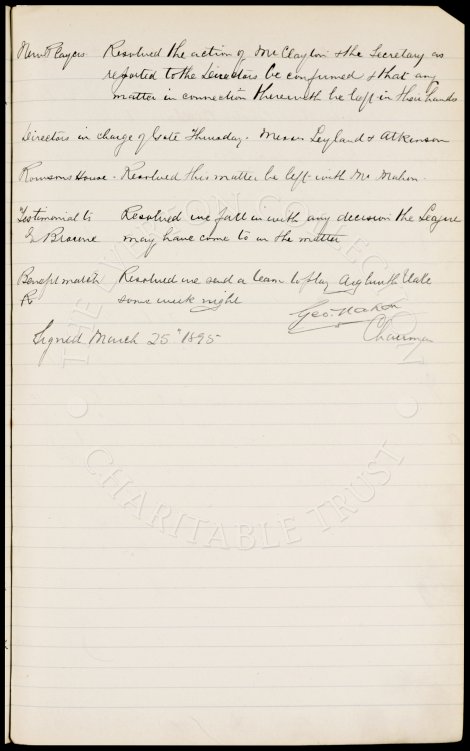 New Players Resolved the action of Mr Clayton & the Secretary as
reported to the Directors be confirmed & that any
matter in connection therewith be left in their hands
Directors in charge of Gate Thursday. Messrs Leyland & Atkinson
Rowsons House. Resolved this matter be left with Mr Mahon.
Testimonial to Resolved we fall in with any decision the League
Browne may have come to in the matter
Benefit match Resolved we send a team to play Aigburth Vale
some week night
Geo. Mahon
Signed March 25" 1895 Chairman
THE EVERTON COLLECTION
CHARITABLE TRUST